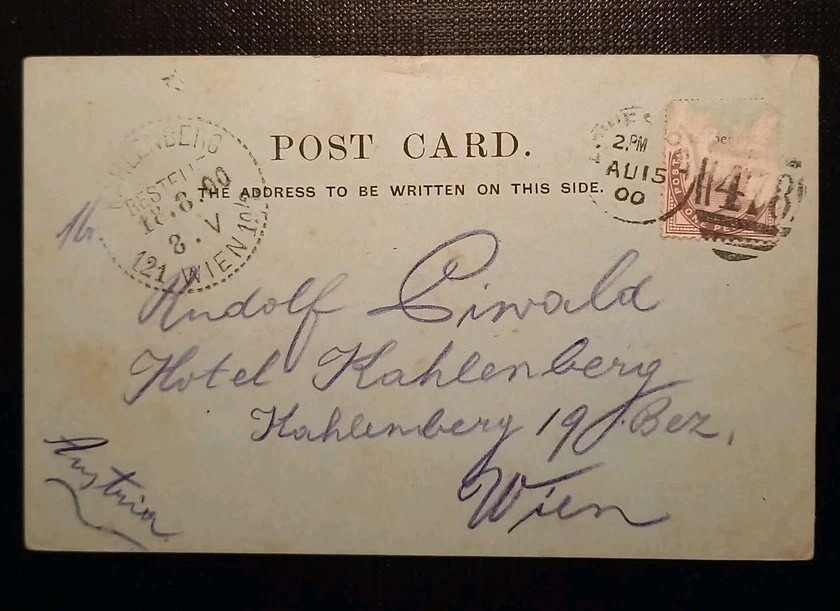 POST CARD.
THE ADDRESS TO BE WRITTEN ON THIS SIDE.
KAHLENBERG
BESTELLT
18.8.00
8.V
121 WIEN
2.PM
AU 15
00
478
POST
Rudolf Eiwald
Hotel Kahlenberg
Kahlenberg 19. Bez.
Wien
Austria